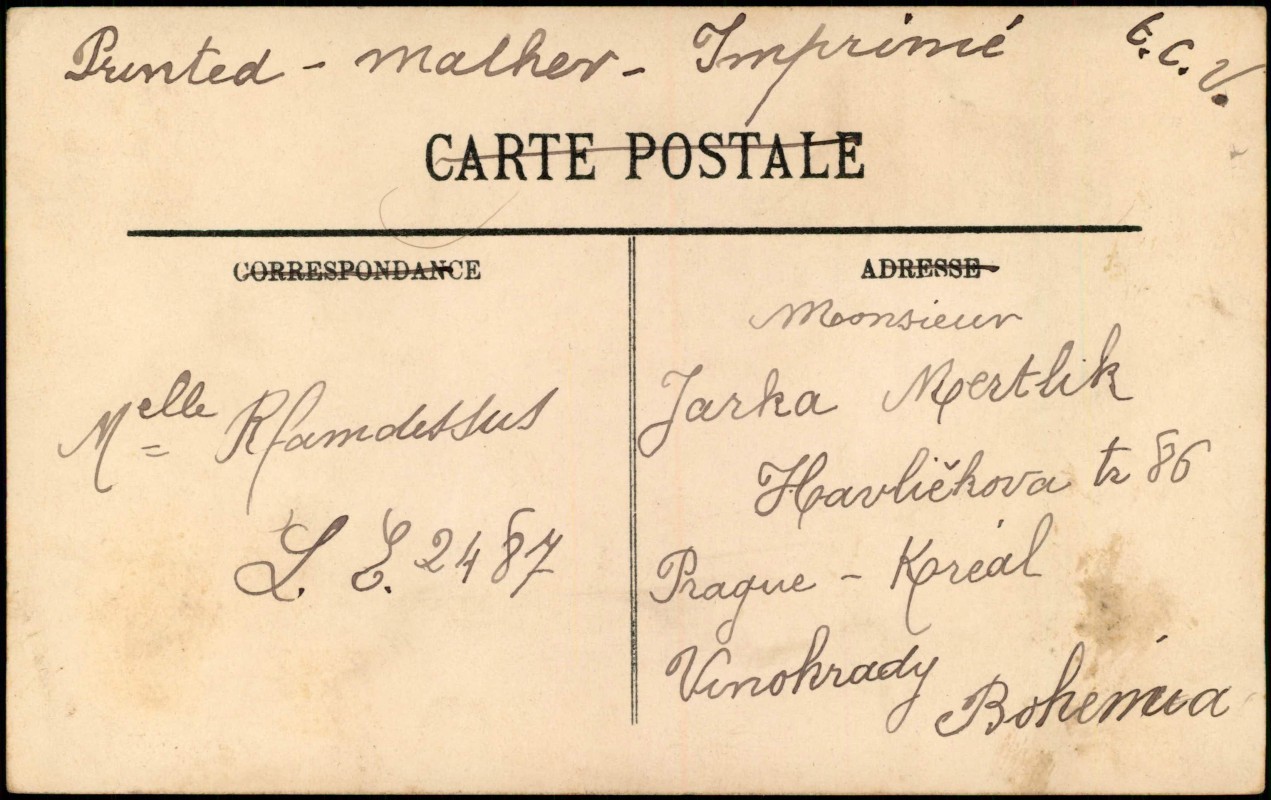 Printed - mather - Imprimé T.C.V.
CARTE POSTALE
CORRESPONDANCE
ADRESSE
Monsieur
Jarka Mertlik
Melle
Havličkova tr 86
L. E. 2487
Prague - Koréal
Vinohrady
Bohemia